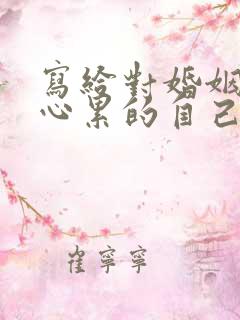 寫給對婚姻
心累的自己
崔寧寧